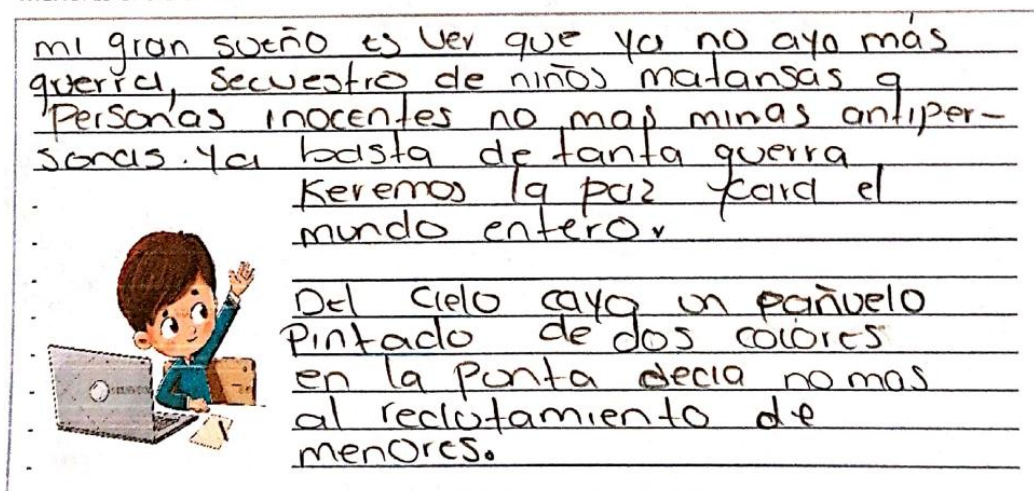 mi gran sueño es ver que ya no aya más
guerra, secuestro de niños matansas a
Personas inocentes no mas minas antiper-
sonas. Ya basta de tanta guerra
Keremos la paz para el
mundo entero.
Del cielo cayo un pañuelo
Pintado de dos colores
en la Punta decia no mas
al reclutamiento de
menores.